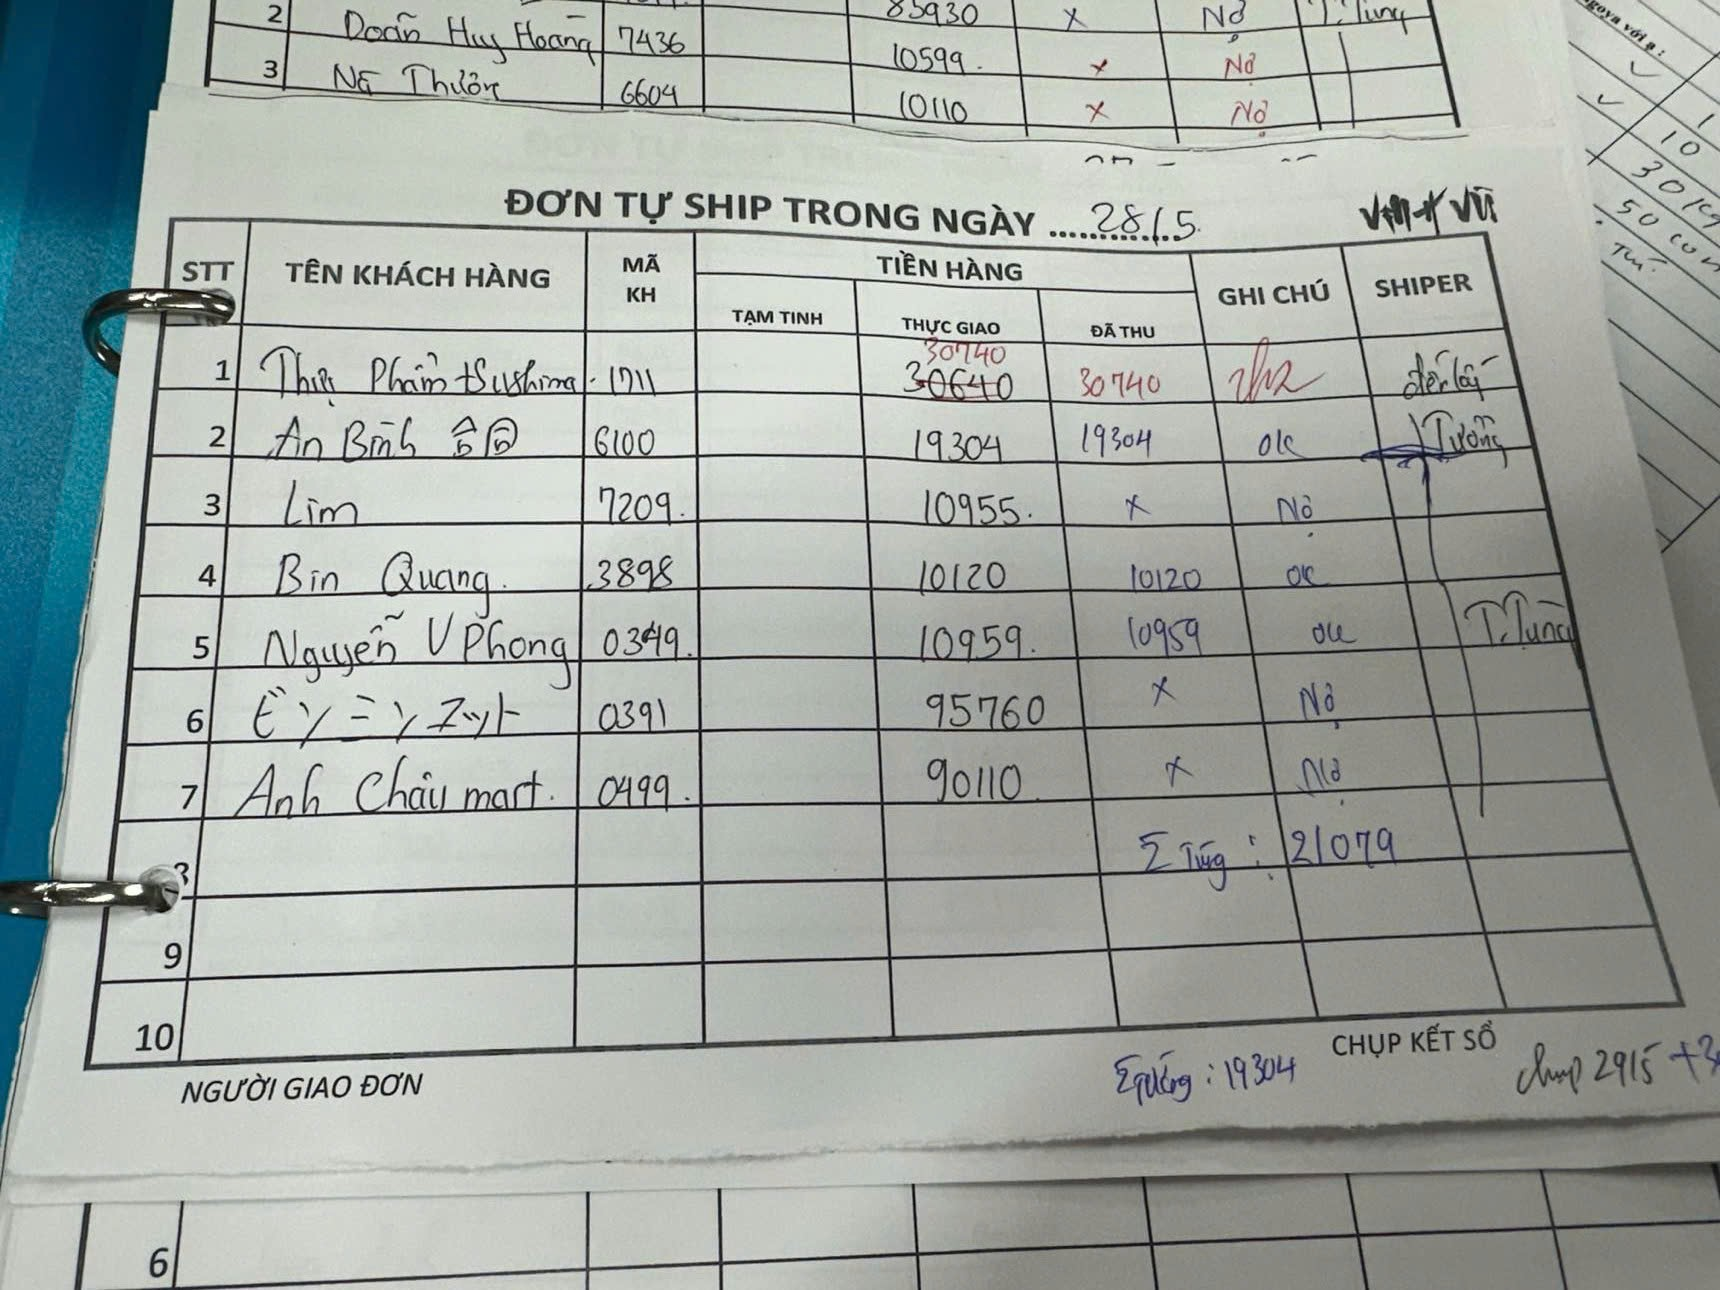 2 Doãn Huy Hoàng 7436 83930 x Nợ T.Tùng
3 NE Thườn 6604 10599. x Nợ
10110 x Nợ
ĐƠN TỰ SHIP TRONG NGÀY ....28/5.
STT TÊN KHÁCH HÀNG MÃ KH TIỀN HÀNG GHI CHÚ SHIPER
TẠM TINH THỰC GIAO ĐÃ THU
30740
1 Thực Phẩm +Sushima. 1711 30640 30740 đến lấy
2 An Bình 6100 19304 19304 ok Tưởng
3 Lim 7209. 10955. x Nợ
4 Bin Quang. 3898 10120 10120 ok
5 Nguyễn V Phong 0349. 10959. 10959 ok T.Tùng
6 ビンミンマット 0391 95760 x Nợ
7 Anh Châu mart. 0499. 90110 x Nợ
Σ Tùng : 21079
9
10
NGƯỜI GIAO ĐƠN
CHỤP KẾT SỔ
: 19304
chụp 2915 +3
6
ngoya với ạ :
1
10
30 kg
50 con